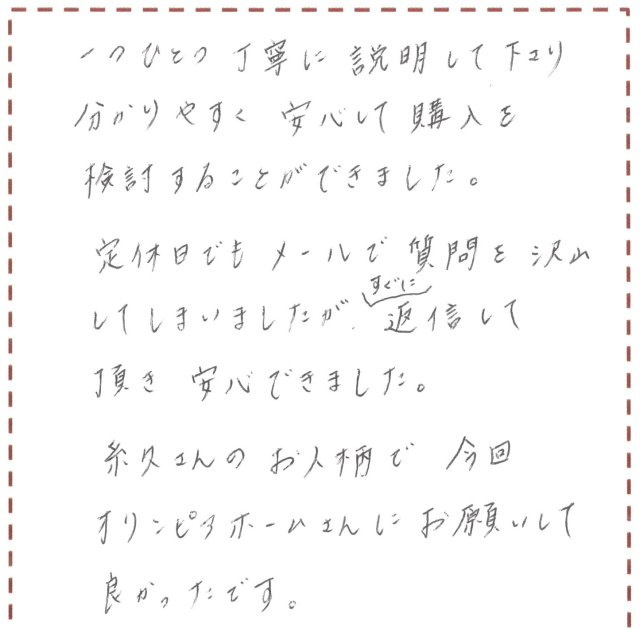 一つひとつ丁寧に説明して下さり
分かりやすく安心して購入を
検討することができました。
定休日でもメールで質問を沢山
してしまいましたが、すぐに返信して
頂き安心できました。
糸久さんのお人柄で今回
オリンピアホームさんにお願いして
良かったです。